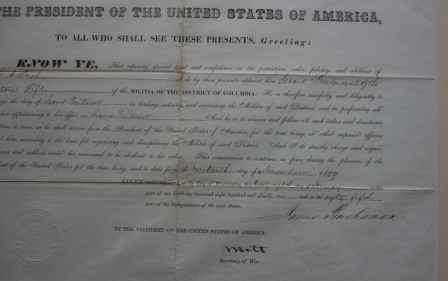 THE PRESIDENT OF THE UNITED STATES OF AMERICA,
TO ALL WHO SHALL SEE THESE PRESENTS, Greeting:
KNOW YE, That reposing special trust and confidence in the patriotism, valor, fidelity, and abilities of
I do by these presents appoint him Second Lieutenant of the
of the MILITIA OF THE DISTRICT OF COLUMBIA: He is therefore carefully and diligently to
the duty of Second Lieutenant in leading, ordering, and exercising the Militia of said District, and in performing all
appertaining to his office as Second Lieutenant And he is to observe and follow such orders and directions,
time to time, as he shall receive from the President of the United States of America, for the time being, or other superior officers
him, according to the law for regulating and disciplining the Militia of said District. And I do strictly charge and require
and soldiers under his command to be obedient to his orders. This commission to continue in force during the pleasure of the
of the United States for the time being, and to date from the day of November 1859
GIVEN under my at the City of in the
year of our Lord one thousand eight hundred and sixty one and in the eighty fifth
year of the Independence of the said States.
James Buchanan
BY THE PRESIDENT OF THE UNITED STATES OF AMERICA:
Secretary of War.